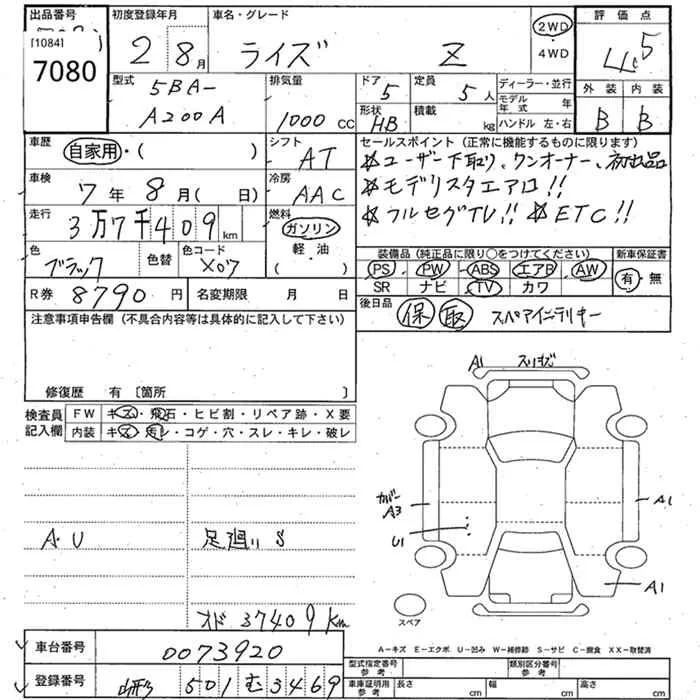 出品番号 初度登録年月 車名・グレード 2WD 評価点
[1084] 2 8月 ライズ Z ・ 4.5
7080 4WD
型式 排気量 ドア 定員 ディーラー・並行 外装 内装
5BA- 5 5人 モデル年式 年
A200A 1000cc 形状 HB 積載 kg ハンドル 左・右 B B
車歴 自家用・( ) シフト AT セールスポイント (正常に機能するものに限ります)
☆ユーザー下取り、ワンオーナー、初出品
車検 7年8月( 日) 冷房 AAC ☆モデリスタエアロ!!
走行 3万7千409km 燃料 ガソリン ☆フルセグTV!! ☆ETC!!
軽・油
( )
色 ブラック 色替 色コード X07 装備品 (純正品に限り○をつけてください) 新車保証書
PS PW ABS エアB AW 有・無
SR ナビ TV カワ
R券 8790円 名変期限 月 日 後日品 保 取 スペアインテリキー
注意事項申告欄 (不具合内容等は具体的に記入して下さい)
修復歴 有 [箇所 ]
検査員 FW キズ・飛石・ヒビ割・リペア跡・X要
記入欄 内装 キズ・汚レ・コゲ・穴・スレ・キレ・破レ
A1 スリキズ
カバー
A3
A1
U1
A・U 足廻り S
A1
オド 37409km
スペア
A-キズ E-エクボ U-凹み W-補修跡 S-サビ C-腐食 XX-取替済
車台番号 0073920
型式指定番号 参考 類別区分番号 参考
登録番号 山形 501 む 3469
車庫証明用 参考 長さ cm 幅 cm 高さ cm